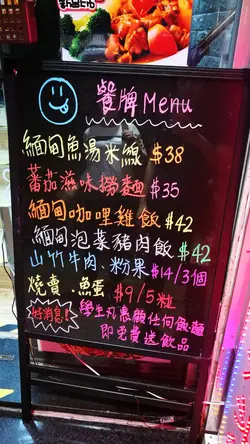 餐牌 Menu
緬甸魚湯米線 $38
蕃茄滋味撈麵 $35
緬甸咖哩雞飯 $42
緬甸泡菜豬肉飯 $42
山竹牛肉、粉果 $14/3個
燒賣、魚蛋 $9/5粒
好消息! 學生凡惠顧任何飯麵
即免費送飲品